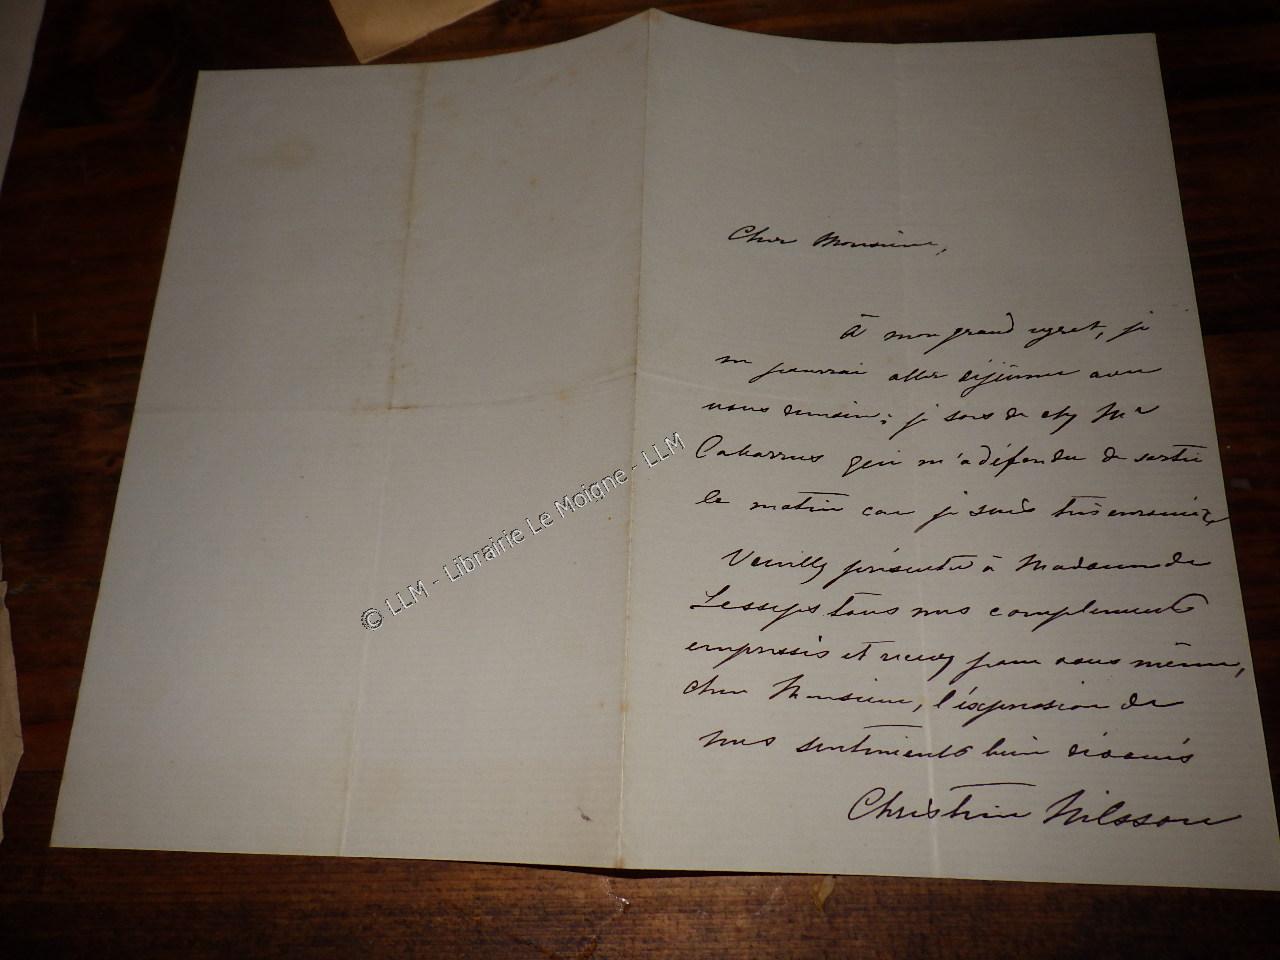 Cher Monsieur,
À mon grand regret, je
ne pourrai aller déjeuner avec
vous demain; je sors de chez Mr
Cabarrus qui m'a défendu de sortir
le matin car je suis très enrouée
Veuillez présenter à Madame de
Lesseps tous mes compliments
empressés et recevez pour vous même,
cher Monsieur, l'expression de
mes sentiments bien dévoués
Christine Nilsson
© LLM - Librairie Le Moigne - LLM